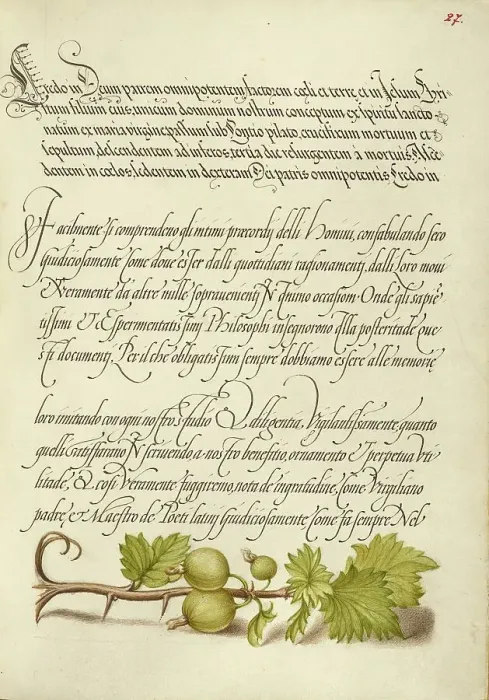 27.
Credo in Deum patrem omnipotentem, factorem cœli et terre et in Jesum Chri-
stum filium eius, unicum dominum nostrum conceptum ex spiritu sancto
natum ex maria virgine passum sub Pontio pilato, crucifixum mortuum et
sepultum, descendentem ad inferos, tertia die resurgentem à mortuis, Ascen
dentem in cœlos, sedentem in dexteram Dei patris omnipotentis Credo in
Facilmente si comprendeno gli intimi præcordij delli Homini, confabulando seco
Giudiciosamente Come doue esser dalli quottidiani ragionamenti, dalli loro moui
O Veramente da altre mille soprauenienti N Ognuno occasiom Onde gli sapiē
tissimi Et Esspermentatissimj Philosophi insegnorono Alla posteritade Que
sti documenti, Per il che obligatissimi sempre dobbiamo essere alle memorie
loro imitando con ogni nostro studio E diligentia, Vigilantissamente, quanto
quelli Cattiffarano N scriuendo, a nostro benefitio, ornamento Et perpetua Vti
litade, E cosi Veramente fuggiremo, nota de ingratitudine, Come Virgiliano
padre, et Maestro de Poeti latini Giudiciosamente Come fa sempre Nel